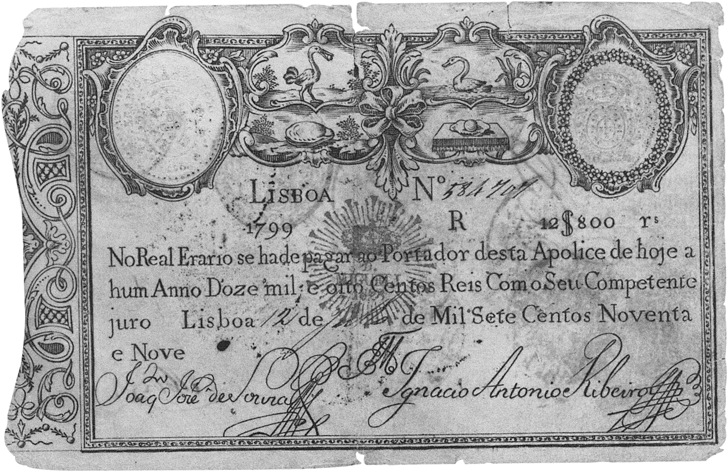 LISBOA Nº 584707
1799 R 12$800 rs
No Real Erario se hade pagar ao Portador desta Apolice de hoje a
hum Anno Doze mil, e oito Centos Reis Com o Seu Competente
juro Lisboa 12 de de Mil Sete Centos Noventa
e Nove
Joaq José de Souza Ignacio Antonio Ribeiro